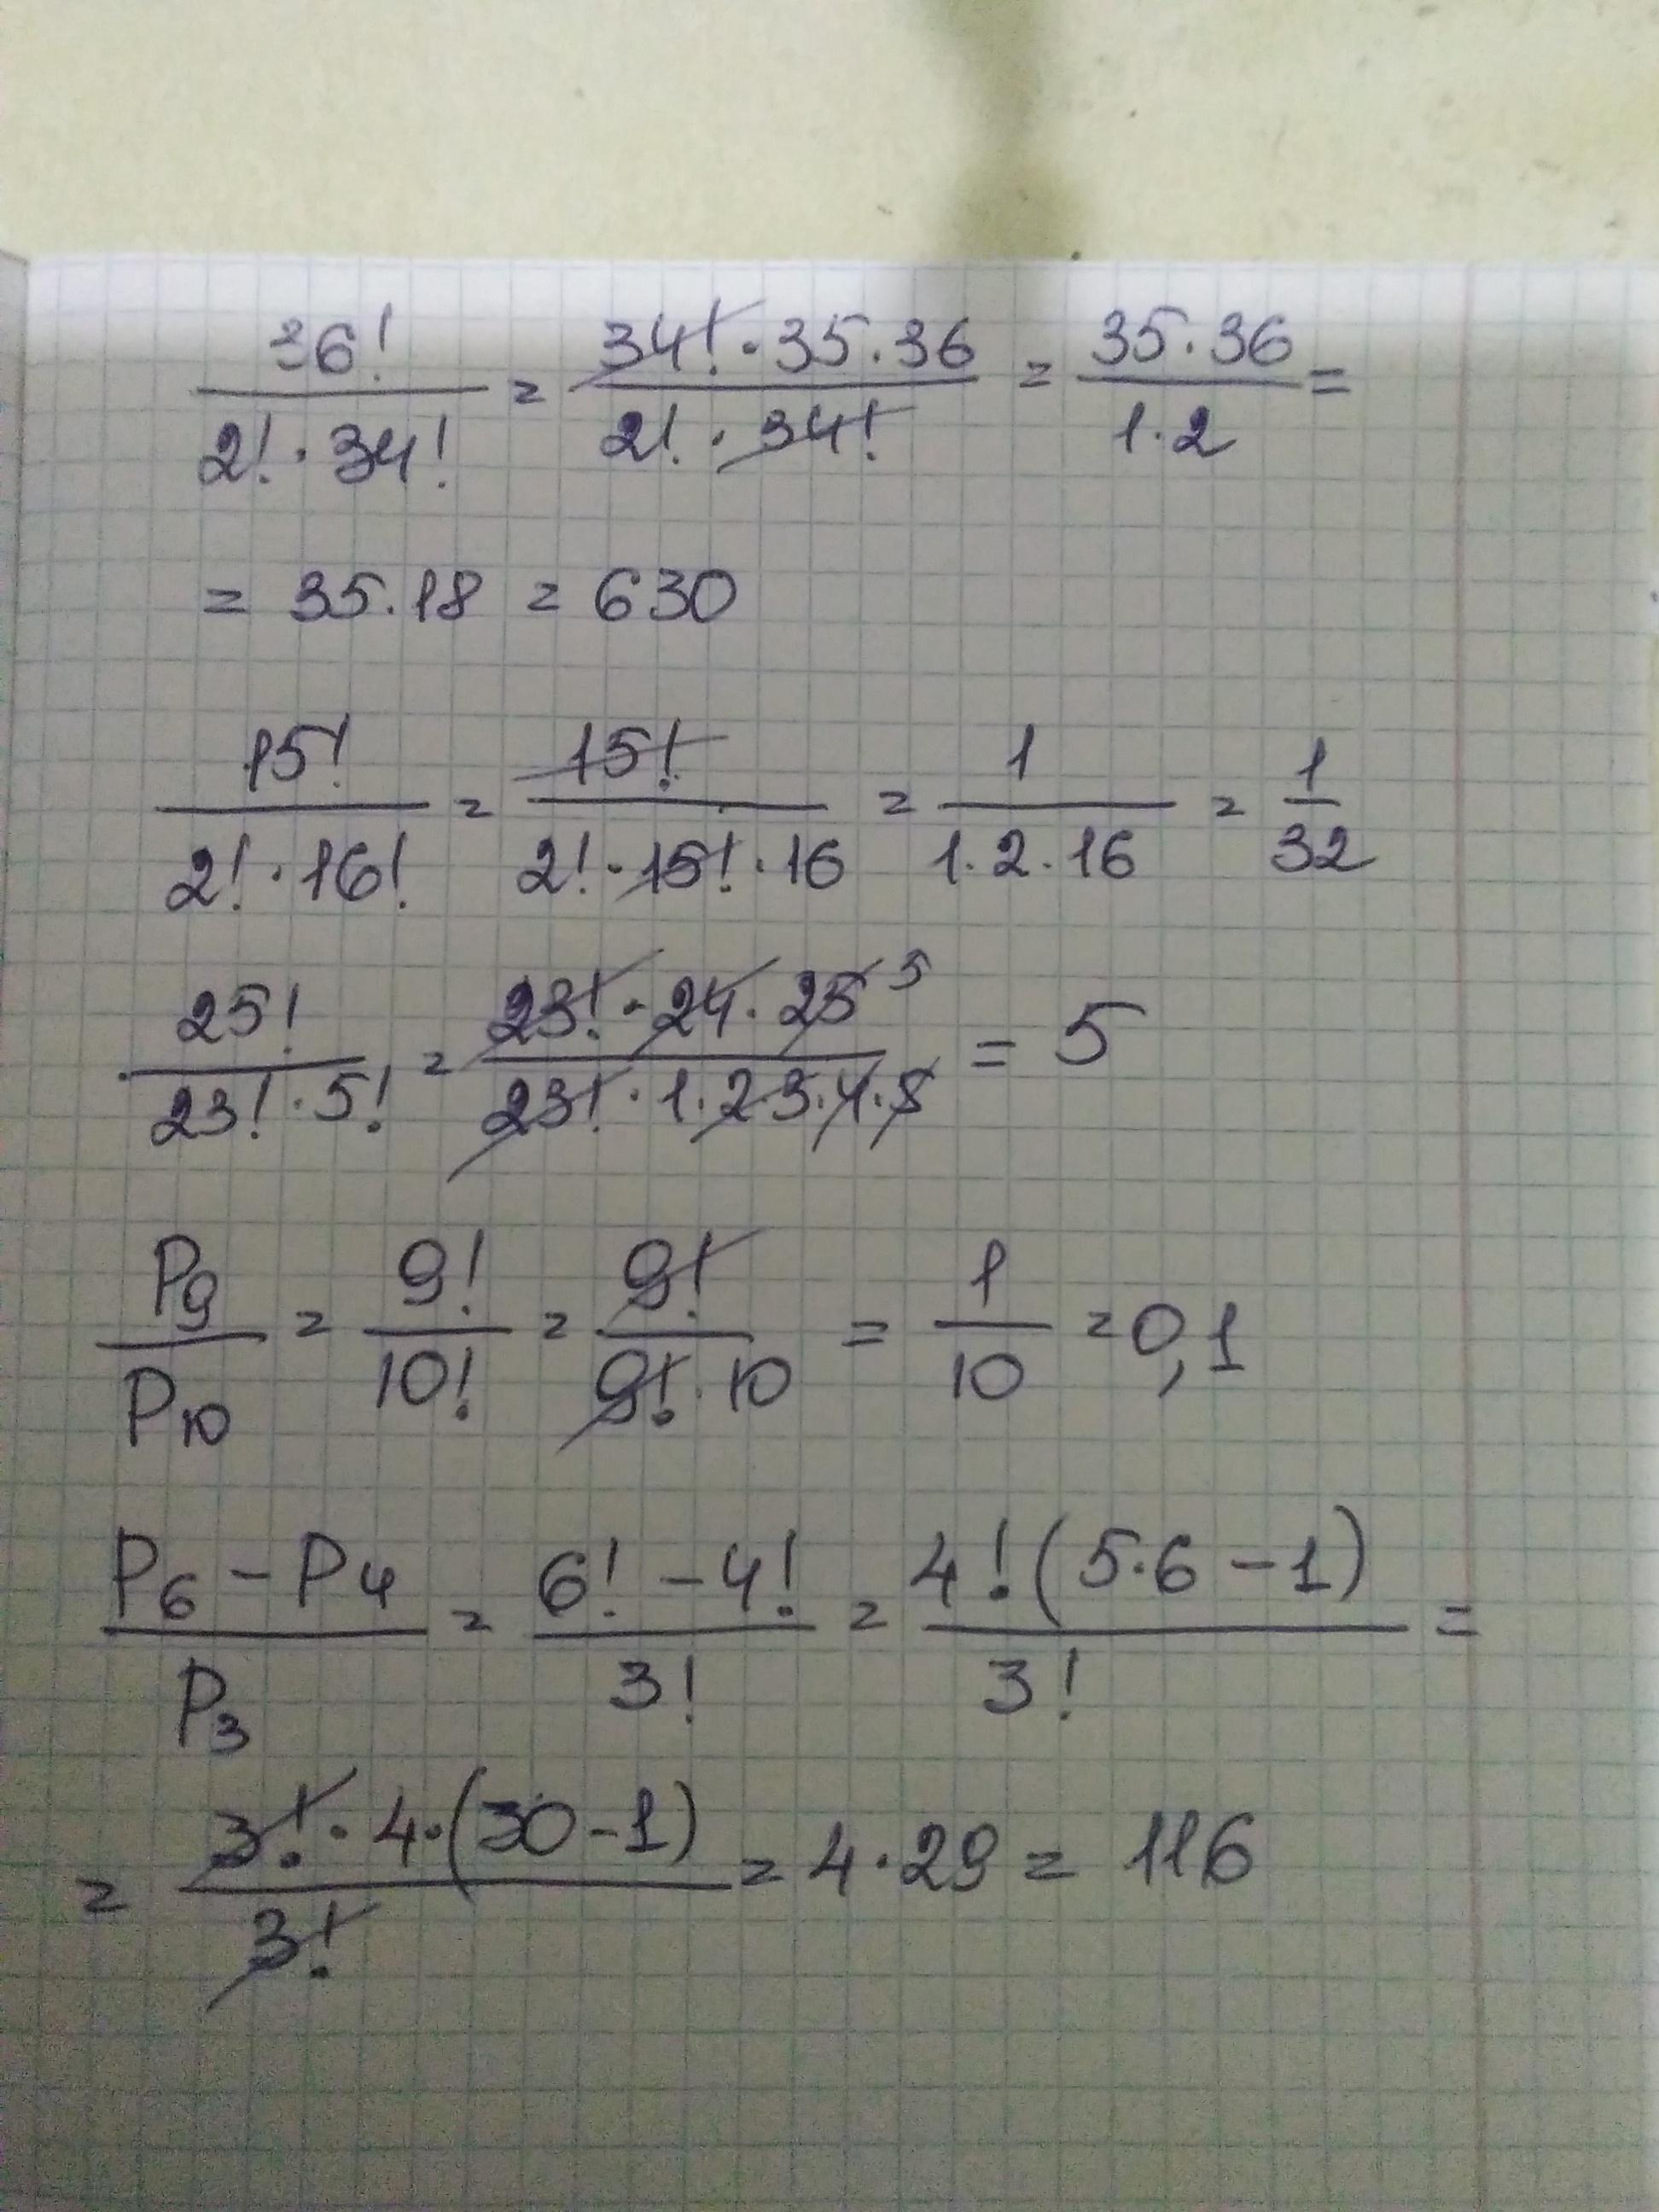 36!/(2! · 34!) = (34! · 35 · 36)/(2! · 34!) = (35 · 36)/(1 · 2) =
= 35 · 18 = 630
15!/(2! · 16!) = 15!/(2! · 15! · 16) = 1/(1 · 2 · 16) = 1/32
25!/(23! · 5!) = (23! · 24 · 25 5)/(23! · 1 · 2 · 3 · 4 · 5) = 5
P9/P10 = 9!/10! = 9!/(9! · 10) = 1/10 = 0,1
(P6 − P4)/P3 = (6! − 4!)/3! = 4!(5 · 6 − 1)/3! =
= 3! · 4 · (30 − 1)/3! = 4 · 29 = 116